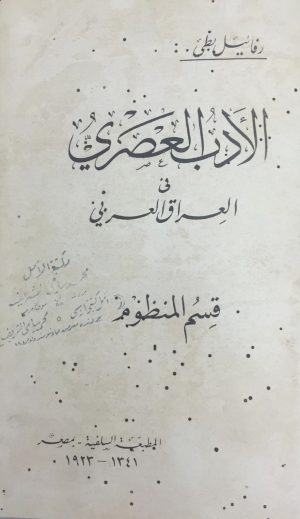 رفائيل بطي
الأدب العصري
في
العراق العربي
مكتبة الأمل
قسم المنظوم
المطبعة السلفية - بمصر
١٣٤١ - ١٩٢٣